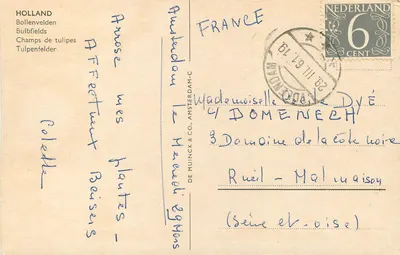 HOLLAND
Bollenvelden
Bulbfields
Champs de tulipes
Tulpenfelder
Amsterdam le Mercredi 29 Mars
Arrose mes plantes -
Affectueux Baisers
Colette
DE MUINCK & CO., AMSTERDAM-C
FRANCE
NEDERLAND
6
CENT
29.III.61.19
Mademoiselle
DYÉ
DOMENECH
3 Domaine de la côte noire
Rueil-Malmaison
(Seine et-oise)